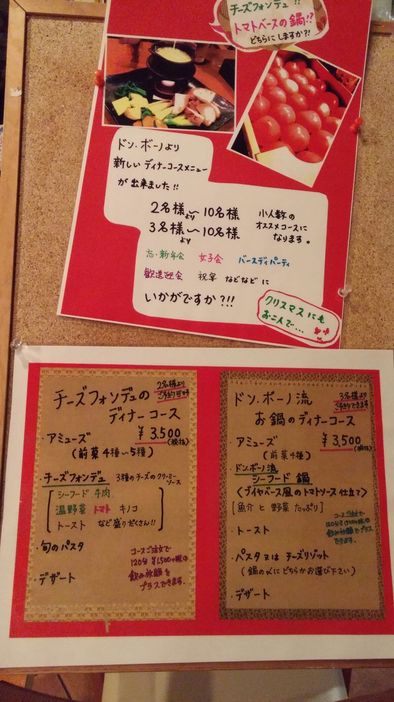 チーズフォンデュ!!
トマトベースの鍋!?
どちらにしますか?!
ドン・ボーノより
新しいディナーコースメニュー
が出来ました!!
2名様より〜10名様
3名様より〜10名様
小人数の
オススメコースに
なります。
忘・新年会 女子会 バースディパーティ
歓送迎会 祝宴 などなどに
いかがですか?!!
クリスマスにも
お二人で...
チーズフォンデュの
ディナーコース
2名様より
¥3,500
(税抜)
・アミューズ
(前菜4種〜5種)
・チーズフォンデュ 3種のチーズのクリーミーソース
シーフード 牛肉
温野菜 トマト キノコ
トースト など盛りだくさん!!
・旬のパスタ
・デザート
コースご注文で
120分 ¥1,500
飲み放題を
プラスできます。
ドン・ボーノ流
お鍋のディナーコース
3名様より
ご予約できます
¥3,500
(税抜)
・アミューズ
(前菜4種)
・ドン・ボーノ流
シーフード鍋
(ブイヤベース風のトマトソース仕立て)
[魚介と野菜たっぷり]
・トースト
・パスタ又はチーズリゾット
(鍋の〆にどちらかお選び下さい)
・デザート
コースご注文で
飲み放題をプラス
できます。